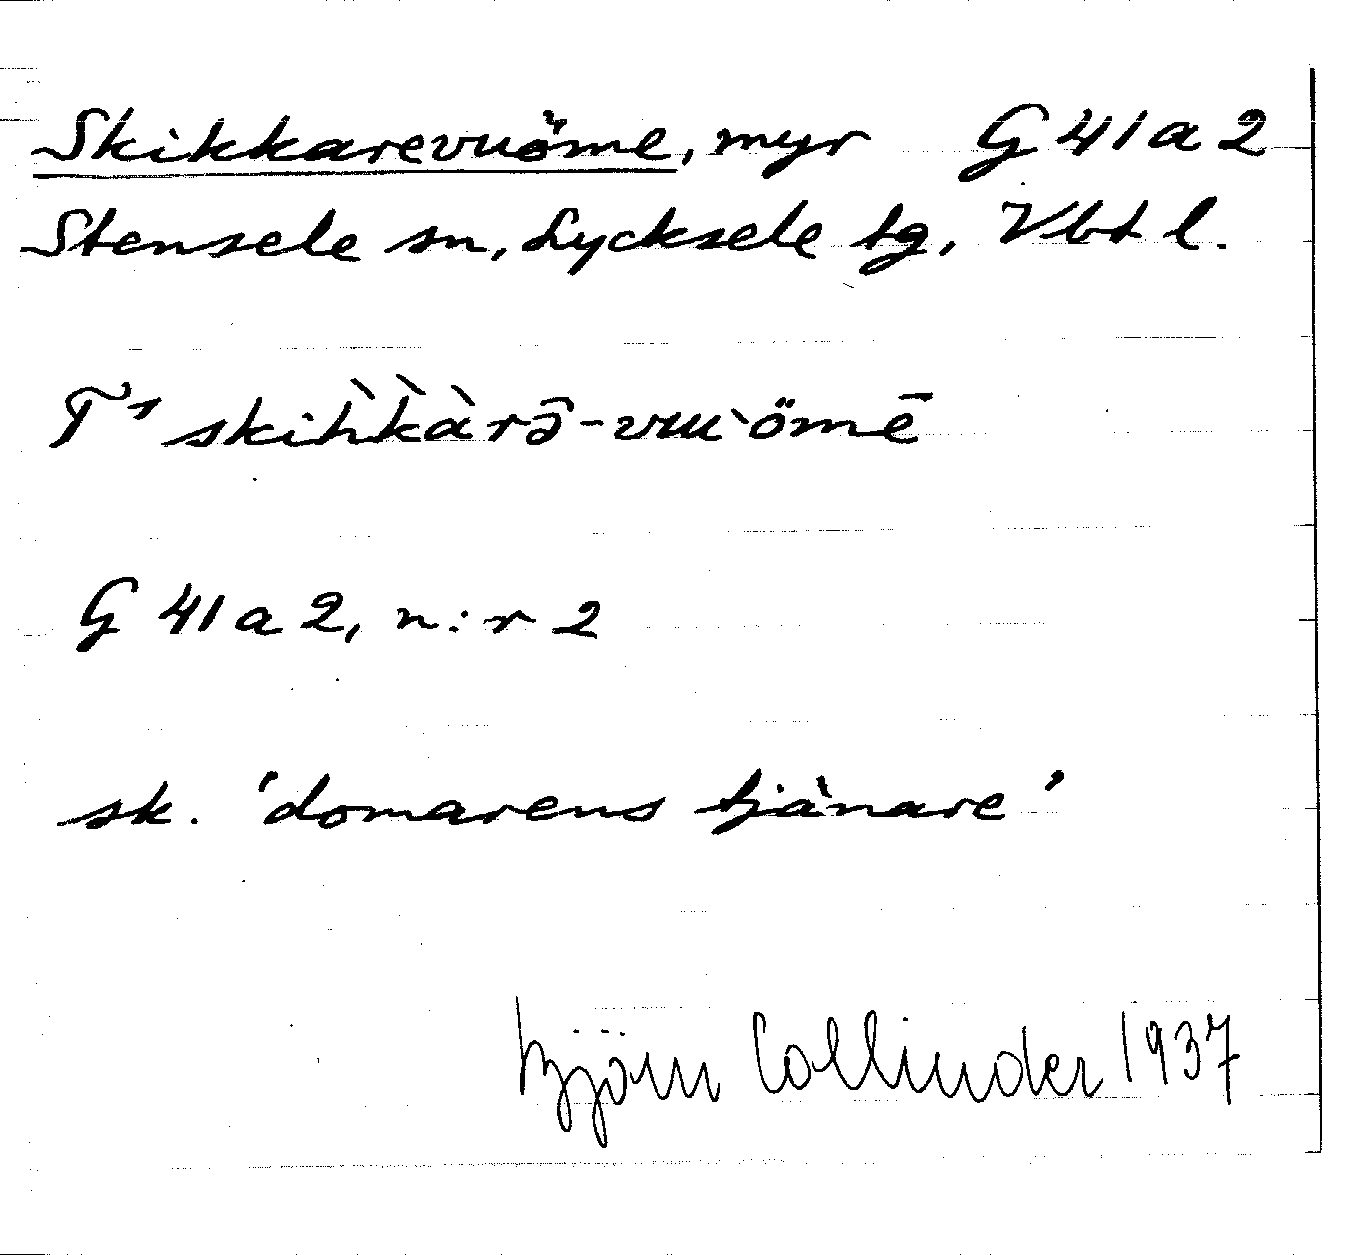 Skikkarevuöme, myr G 41 a 2
Stensele sn, Lycksele tg, Vbt l.
T¹ skik̀k̀àrə̄-vuu`ömē
G 41 a 2, n:r 2
sk. 'domarens tjänare'
Björn Collinder 1937